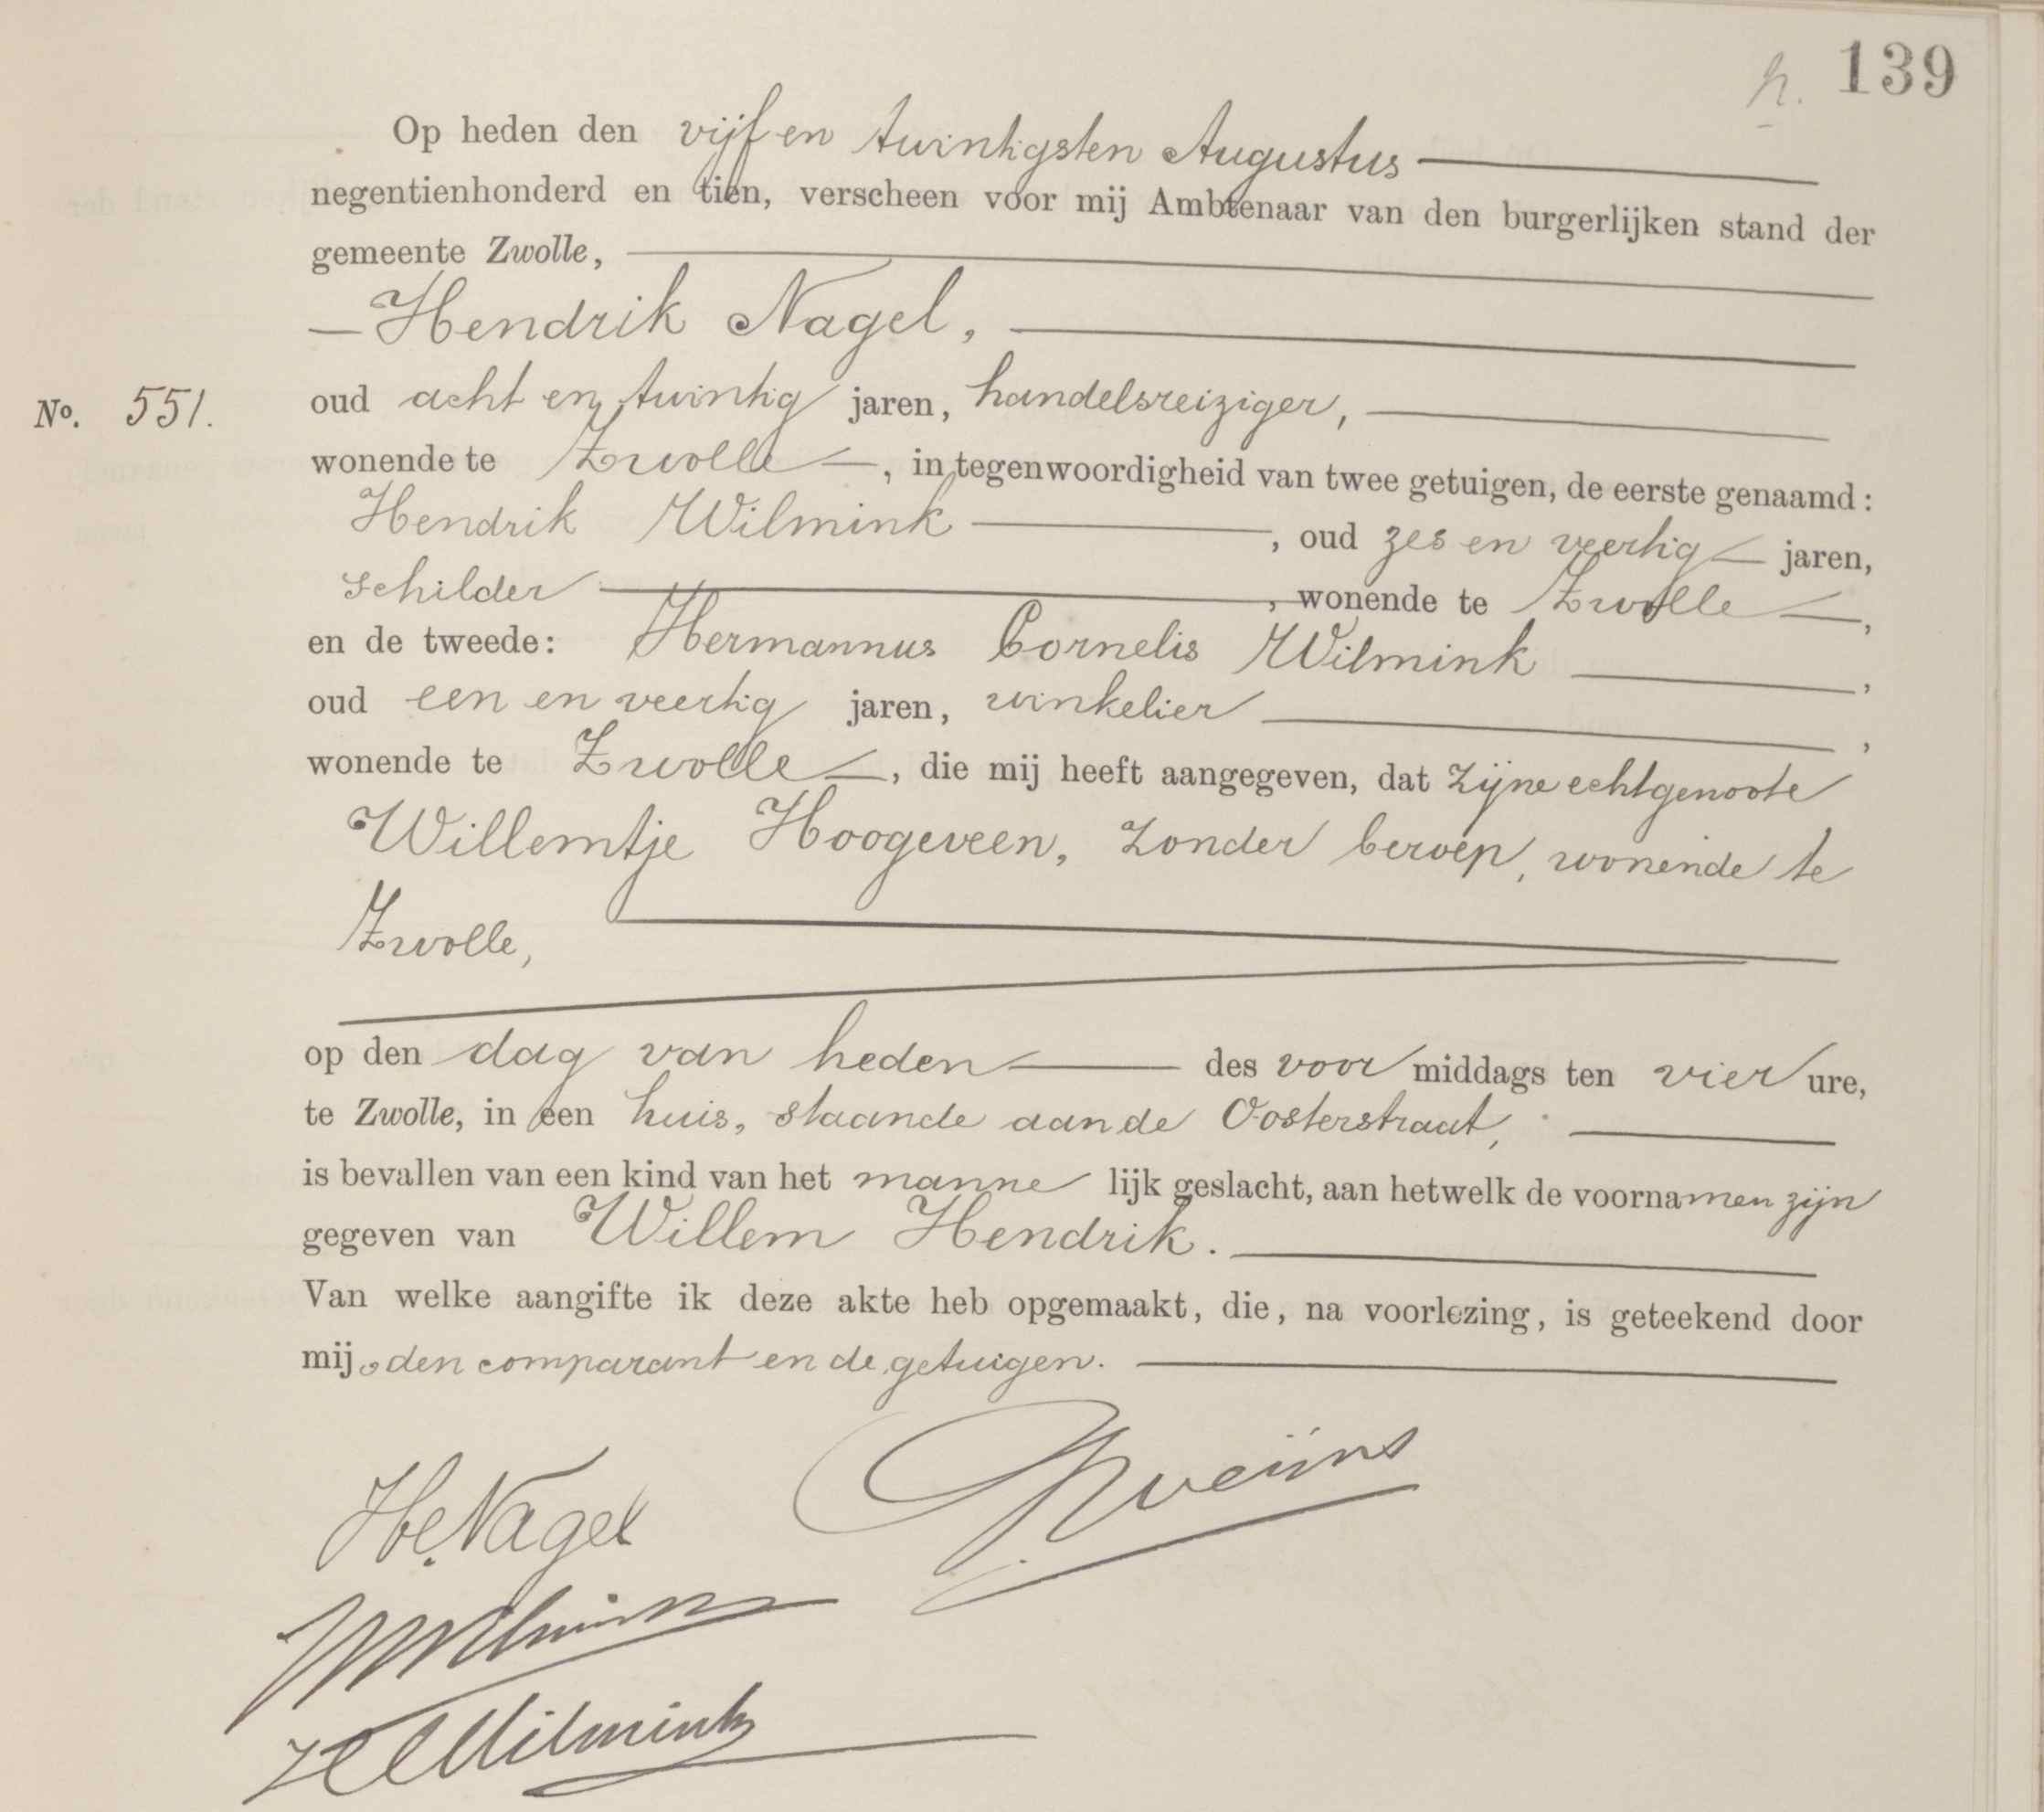 h. 139
Op heden den vijf en twintigsten Augustus
negentienhonderd en tien, verscheen voor mij Ambtenaar van den burgerlijken stand der
gemeente Zwolle,
Hendrik Nagel,
No. 551. oud acht en twintig jaren, handelsreiziger,
wonende te Zwolle, in tegenwoordigheid van twee getuigen, de eerste genaamd:
Hendrik Wilmink, oud zes en veertig jaren,
schilder, wonende te Zwolle,
en de tweede: Hermannus Cornelis Wilmink,
oud een en veertig jaren, winkelier,
wonende te Zwolle, die mij heeft aangegeven, dat zijne echtgenoote
Willemtje Hoogeveen, zonder beroep, wonende te
Zwolle,
op den dag van heden des voor middags ten vier ure,
te Zwolle, in een huis, staande aan de Oosterstraat,
is bevallen van een kind van het manne lijk geslacht, aan hetwelk de voornamen zijn
gegeven van Willem Hendrik.
Van welke aangifte ik deze akte heb opgemaakt, die, na voorlezing, is geteekend door
mij, den comparant en de getuigen.
H. Nagel
HWilmink
HCWilmink